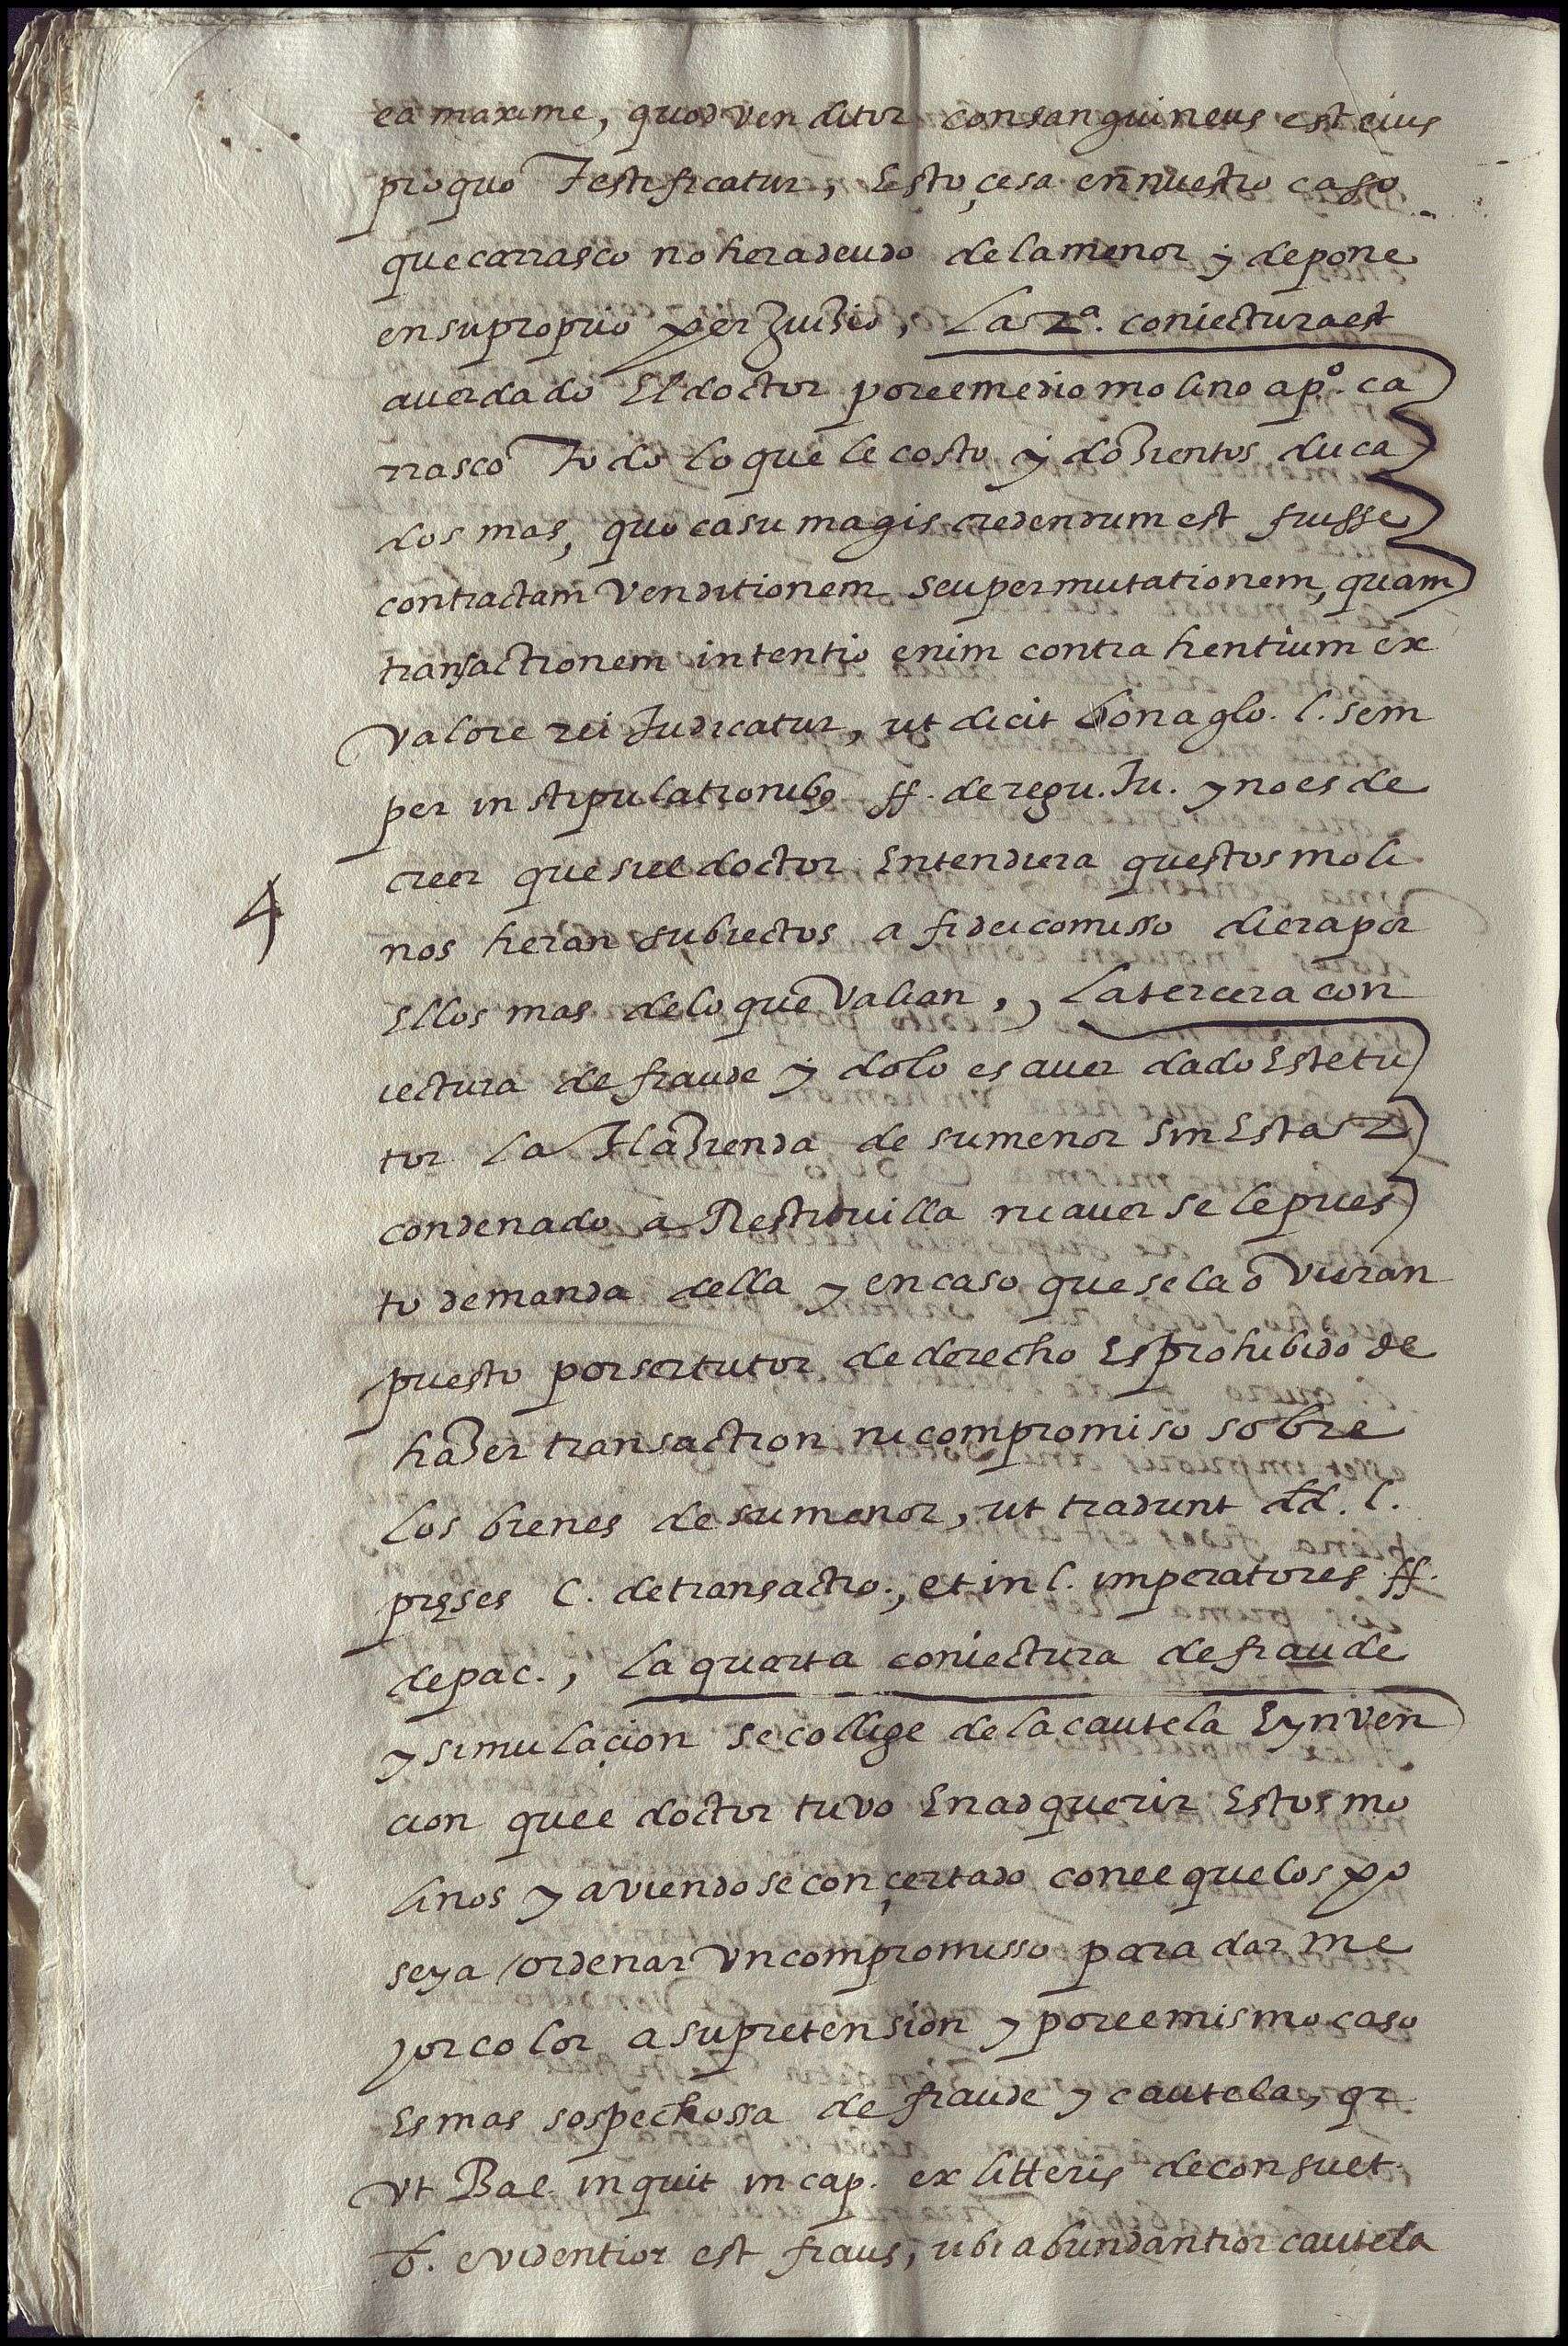 ea maxime, quod venditor consanguineus est eius
pro quo Testificatur, Esto çesa en nuestro caso
que carrasco no hera deudo de la menor y depone
en su proprio perjuiзio, La 2ª. coniectura est
aver dado El doctor por el medio molino a pº. ca
rrasco Todo lo que le costo y doзientos duca
dos mas, quo casu magis credendum est fuisse
contractam venditionem seu permutationem, quam
transactionem intentio enim contrahentium ex
valore rei Judicatur, ut dicit bona glo. l. sem
per in stipulationibꝰ ff. de regu. Ju. y no es de
creer que si el doctor Entendiera questos moli
4
nos heran subiectos a fideicomisso diera por
Ellos mas de lo que valian, , La tercera con
iectura de fraude y dolo es aver dado Este tu
tor la Haзienda de su menor sin Estar
condenado a Restituilla ni averse le pues
to demanda della y en caso que se la oVieran
puesto por ser tutor de derecho Es prohibido de
haзer transaction ni compromiso sobre
los bienes de su menor, ut tradunt dd. l.
pręses C. de transactio., et in l. imperatores ff.
de pac., la quarta coniectura de fraude
y simulaçion se collige de la cautela E ynven
cion que el doctor tuvo En adquerir Estos mo
linos y aviendose conçertado con el que los po
seya ordenar un compromisso para dar me
jor color a su pretension y por el mismo caso
Es mas sospechossa de fraude y cautela, qr
vt Bal. inquit in cap. ex litteris de consuet.
б. evidentior est fraus, ubi abundantior cautela